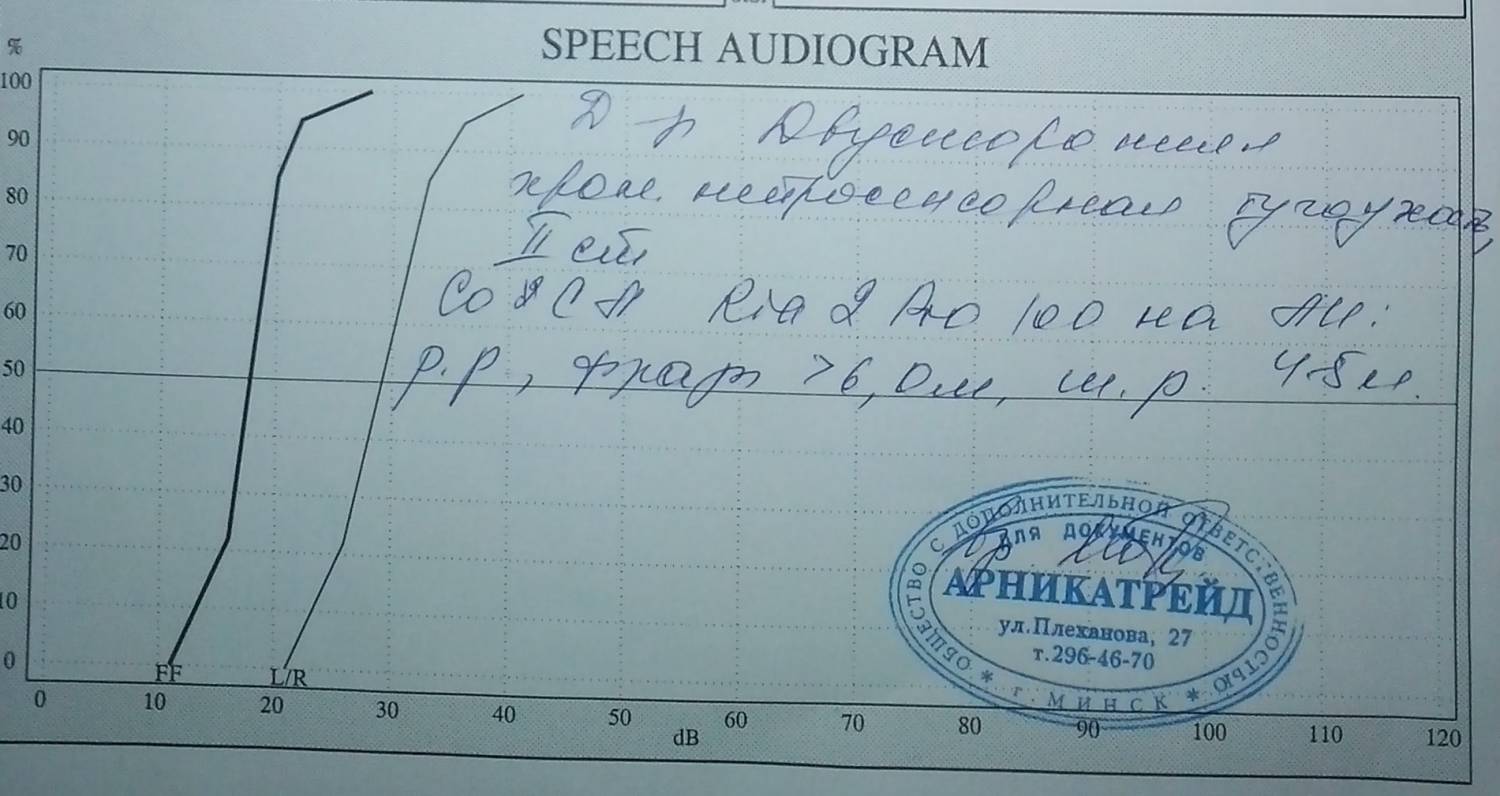 %
SPEECH AUDIOGRAM
100
90
80
70
60
50
40
30
20
10
0
FF
L/R
0 10 20 30 40 50 60 70 80 90 100 110 120
dB
Двусторонняя
хрон. нейросенсорная тугоухость
II ст
Ria 2 Pro 100 на
р.р, >6,0м, ш.р. 4-5м.
ОБЩЕСТВО С ДОПОЛНИТЕЛЬНОЙ ОТВЕТСТВЕННОСТЬЮ
ДЛЯ ДОКУМЕНТОВ
АРНИКАТРЕЙД
ул.Плеханова, 27
т.296-46-70
* г. МИНСК *